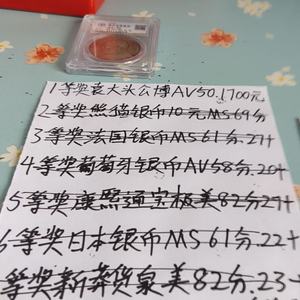 1等奖袁大头公博AV50.1700元
2等奖熊猫银币10元MS69分
3等奖法国银币MS61分.27+
4等奖葡萄牙银币AV58分.20+
5等奖康熙通宝极美82分27+
6等奖日本银币MS61分.22+
等奖新莽货泉美82分.23-